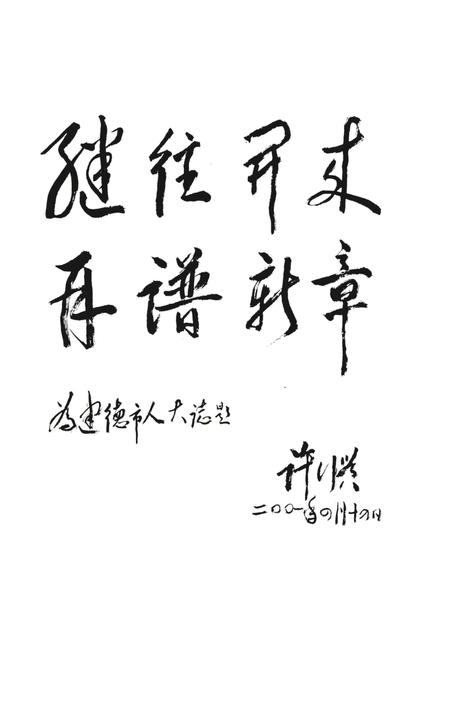 继往开来
再谱新章
为建德市人大誌题
许行贯
二〇〇一年四月十四日